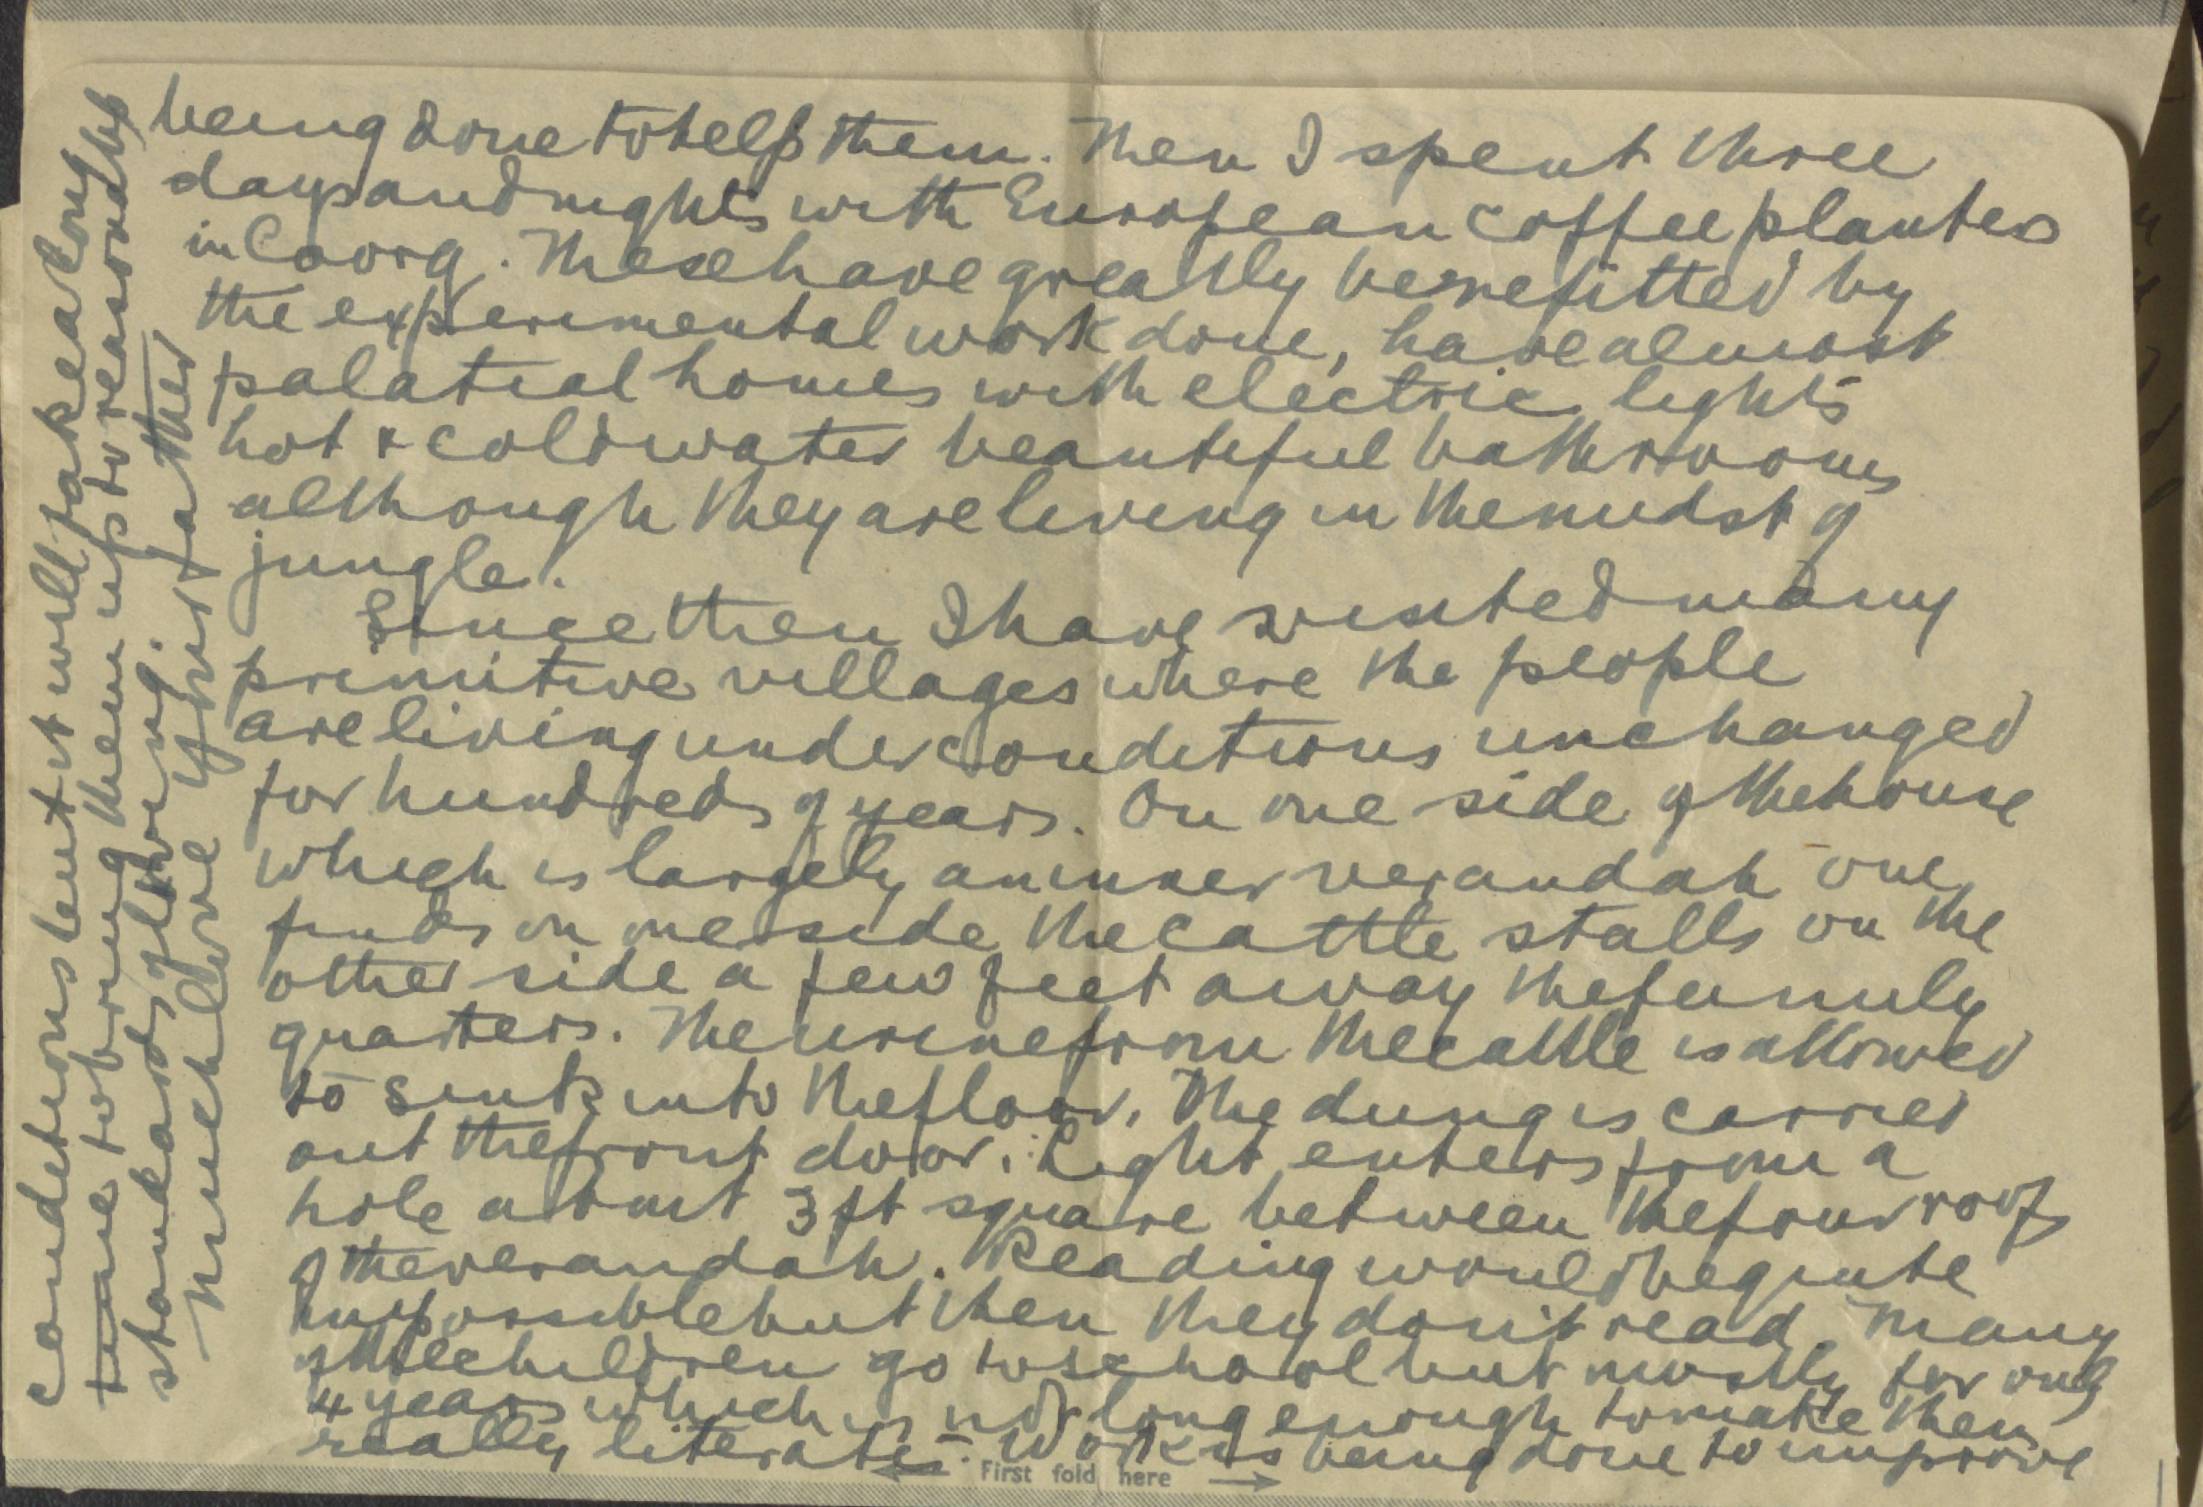 being done to help them. Then I spent three
days and nights with European coffee planters
in Coorg. These have greatly benefitted by
the experimental work done, have almost
palatial homes with electric lights
hot & cold water beautiful bathrooms
although they are living in the midst of
jungle.
Since then I have visited many
primitive villages where the people
are living under conditions unchanged
for hundreds of years. On one side of the house
which is largely an inner verandah one
finds on one side the cattle stalls on the
other side a few feet away the family
quarters. The urine from the cattle is allowed
to sink into the floor. The dung is carried
out the front door. Light enters from a
hole about 3 ft square between the four roofs
of the verandah. Reading would be quite
impossible but then they don't read. Many
of the children go to school but mostly for only
4 years which is not long enough to make them
really literate. Work is being done to improve
← First fold here →
conditions but it will take a long
time to bring them up to reasonable
standards of living.
Much love your father